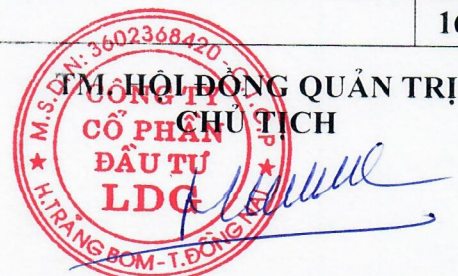 TM. HỘI ĐỒNG QUẢN TRỊ
CHỦ TỊCH
M.S.D.N: 3602368420 - C.T.C.P
CÔNG TY
CỔ PHẦN
ĐẦU TƯ
LDG
H.TRẢNG BOM-T.ĐỒNG NAI